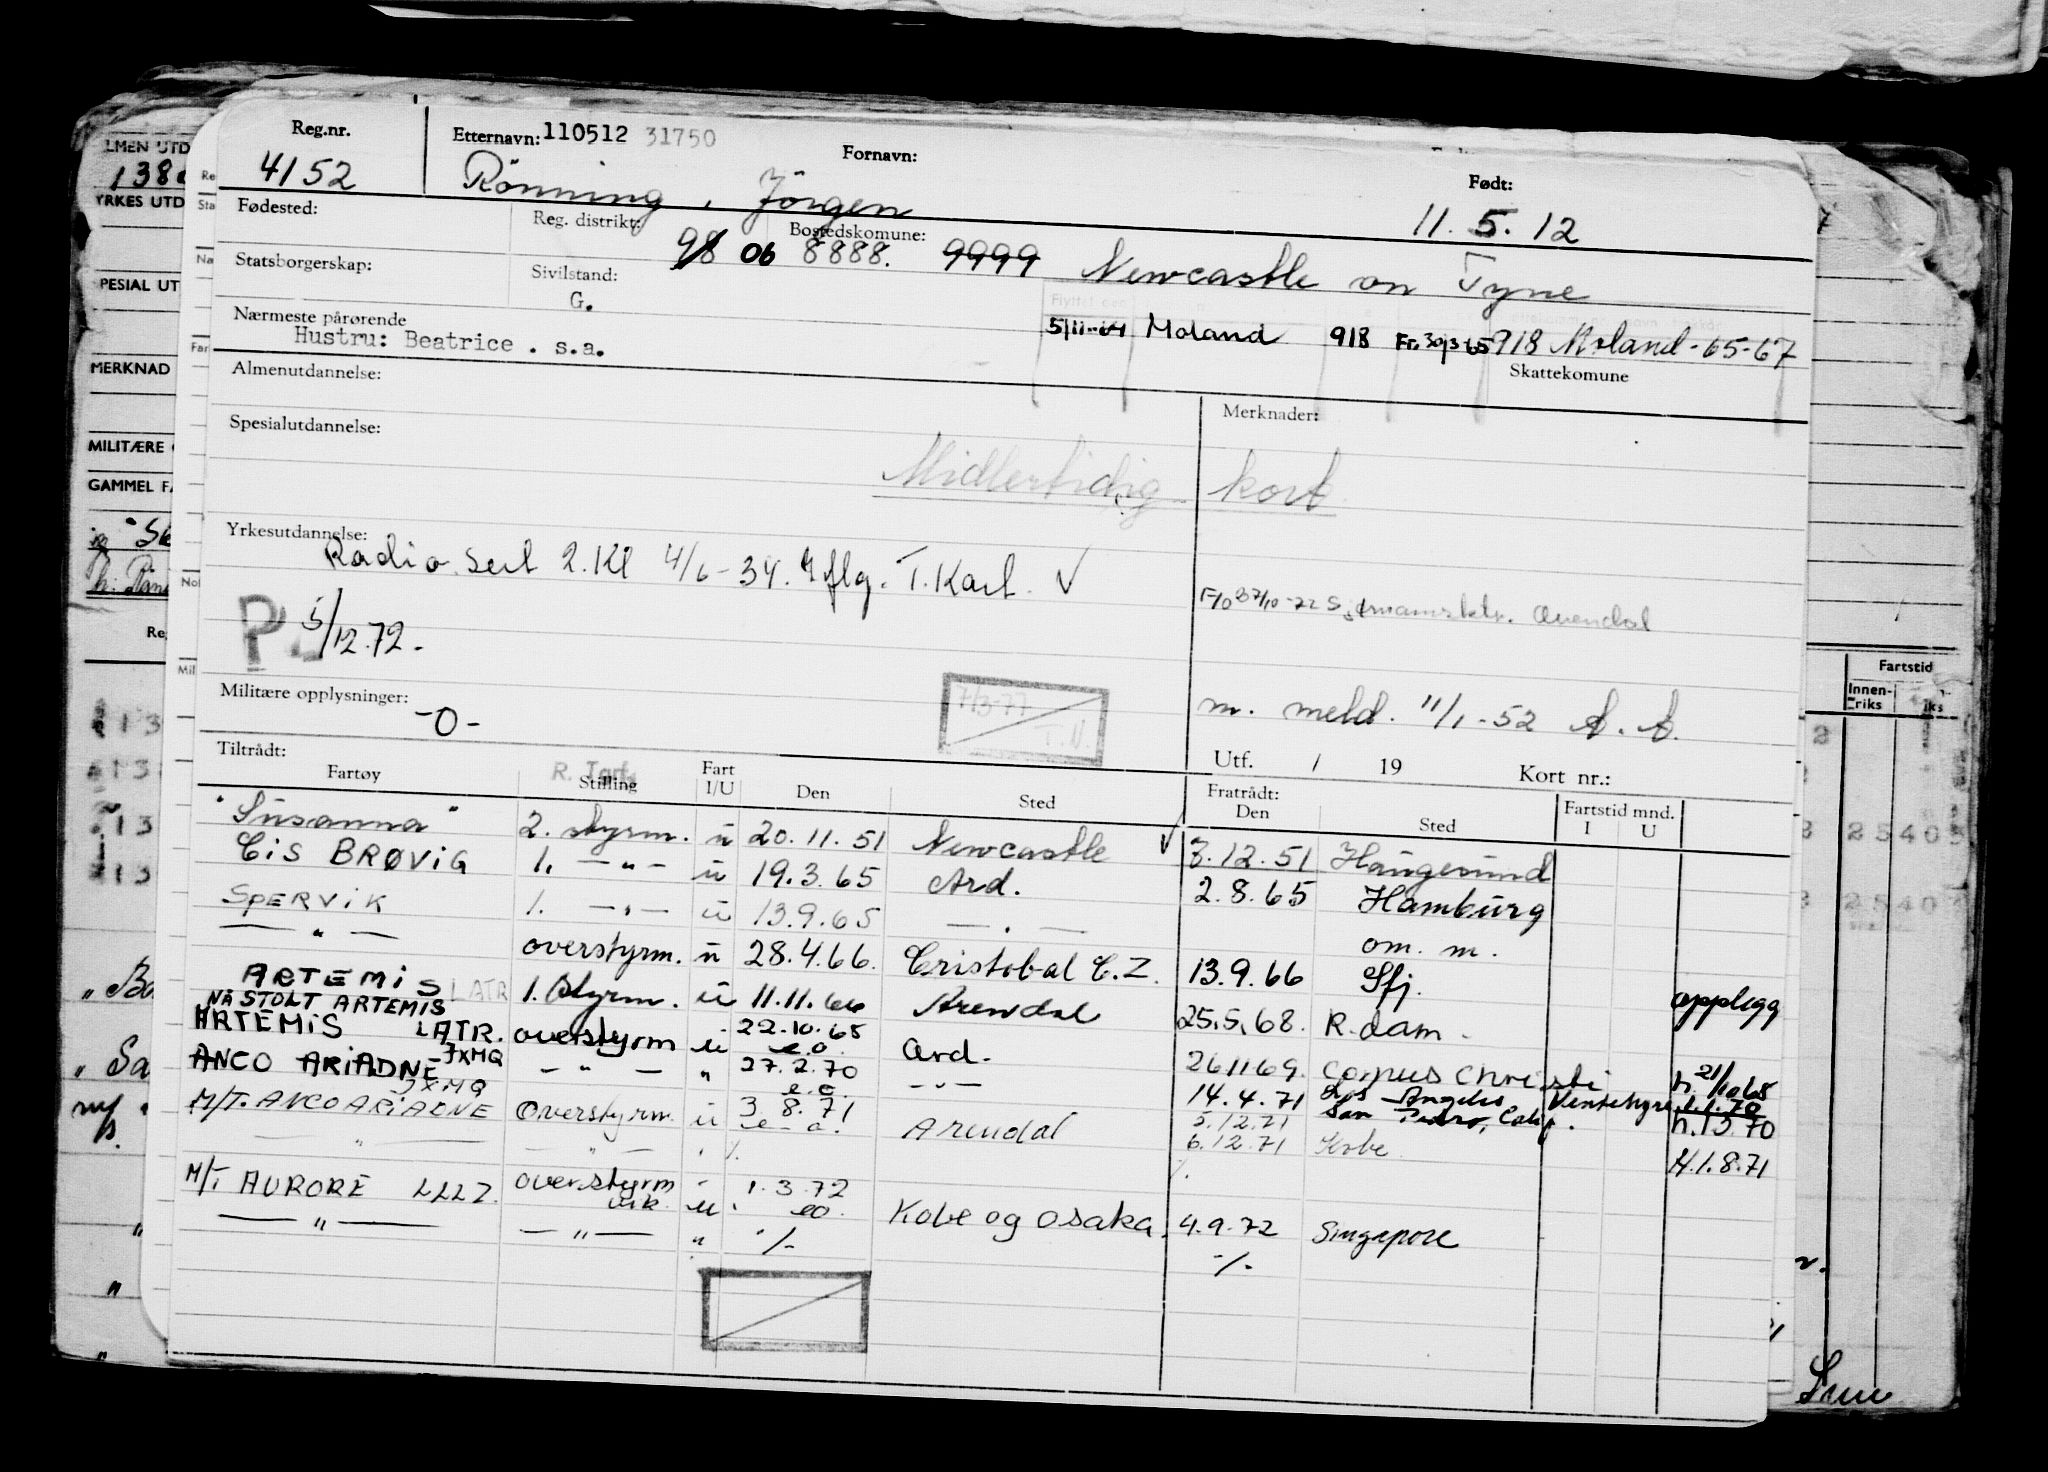 Reg.nr. Etternavn: 110512 31750 Fornavn: Født:
4152 Rönning, Jörgen 11.5.12
Fødested: Reg. distrikt: 98 06 Bostedskomune: 8888. 9999 Newcastle on Tyne
Statsborgerskap: Sivilstand: G.
5/11-64 Moland 918 Fr. 30/3 65 918 Moland-65-67
Nærmeste pårørende
Hustru: Beatrice . s.a.
Skattekomune
Almenutdannelse: Merknader:
Spesialutdannelse:
Midlertidig kort
Yrkesutdannelse:
Radio. Sert 2. Kl 4/6-34. T. Kart. V
P 5/12.72.
Arendal
Militære opplysninger:
-0-
7/3-77
T.N.
m. meld. 11/1-52 A. A.
Utf. / 19 Kort nr.:
Tiltrådt: Fratrådt:
Fartøy Stilling Fart I/U Den Sted Den Sted Fartstid mnd. I U
"Susanna" 2. styrm. u 20.11.51 Newcastle V 3.12.51 Haugesund
Cis BRØViG 1. -"- u 19.3.65 Ard. 2.8.65 Hamburg
SPERViK 1. -"- u 13.9.65 -"- om. m.
-"- overstyrm. u 28.4.66. Cristobal C.Z. 13.9.66 Sfj. opplegg
ARTEMiS LATR 1. Styrm. u 11.11.66 Arendal 25.5.68. R.dam.
NÅ STOLT ARTEMIS
ARTEMiS LATR. overstyrm u 22.10.68 e.o. Ard. 26.11.69. Corpus Christi h. 21/10 68
ANCO ARiADNE JXMQ -"- " 27.2.70 e.o. -"- 14.4.71 Los Angeles Ventehyre 1.1.70
San Pedro, Calif. h.1.3.70
M/T. ANCO ARIADNE JXMQ Overstyrm. u 3.8.71 e-o. Arendal 5.12.71
6.12.71 Kobe H.1.8.71
-"- -"- " %. %.
M/T AURORE LLLZ overstyrm vik. u. 1.3.72 eo. Kobe og Osaka. 4.9.72 Singapore
-"- -"- " %. %.
LMEN UTD
138
YRKES UTD
PESIAL UT
MERKNAD
MILITÆRE
GAMMEL FA
Fartstid
Innen-riks
2540
2540